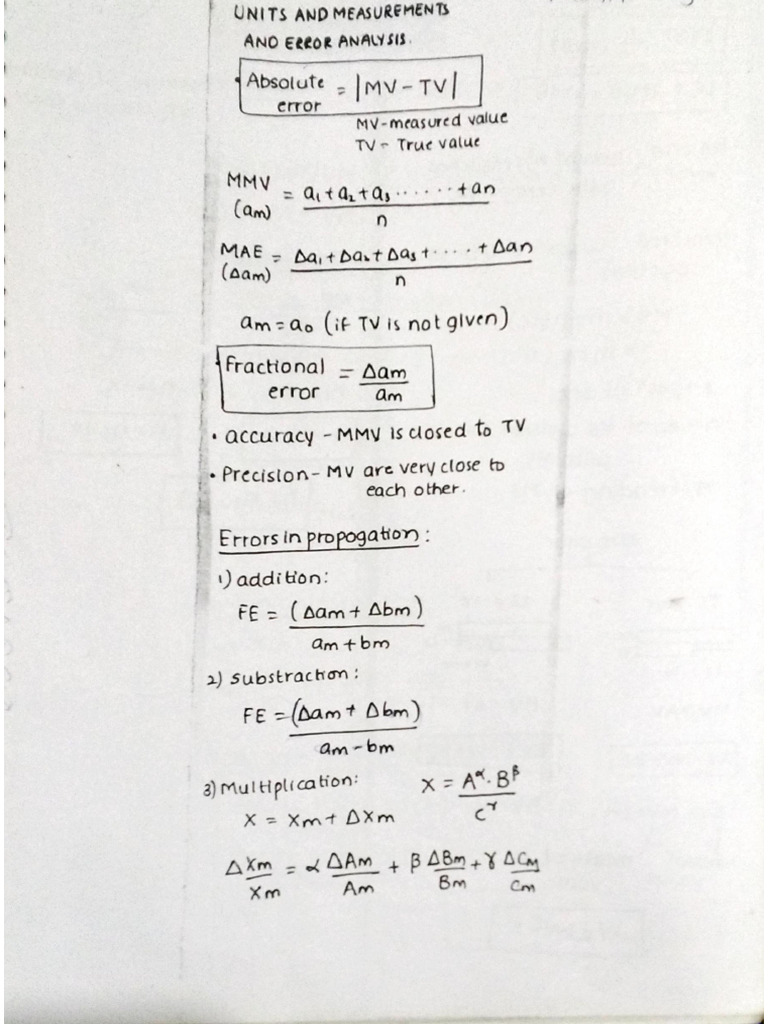 UNITS AND MEASUREMENTS
AND ERROR ANALYSIS.
• Absolute error = |MV - TV|
MV - measured value
TV - True value
MMV (am) = a₁ + a₂ + a₃ ...... + an / n
MAE (Δam) = Δa₁ + Δa₂ + Δa₃ + .... + Δan / n
am = a₀ (if TV is not given)
• Fractional error = Δam / am
• accuracy - MMV is closed to TV
• Precision - MV are very close to
each other.
Errors in propogation :
1) addition:
FE = (Δam + Δbm) / am + bm
2) Substraction :
FE = (Δam + Δbm) / am - bm
3) Multiplication: X = A^α · B^β / C^γ
X = Xm + ΔXm
ΔXm / Xm = α ΔAm / Am + β ΔBm / Bm + γ ΔCm / Cm